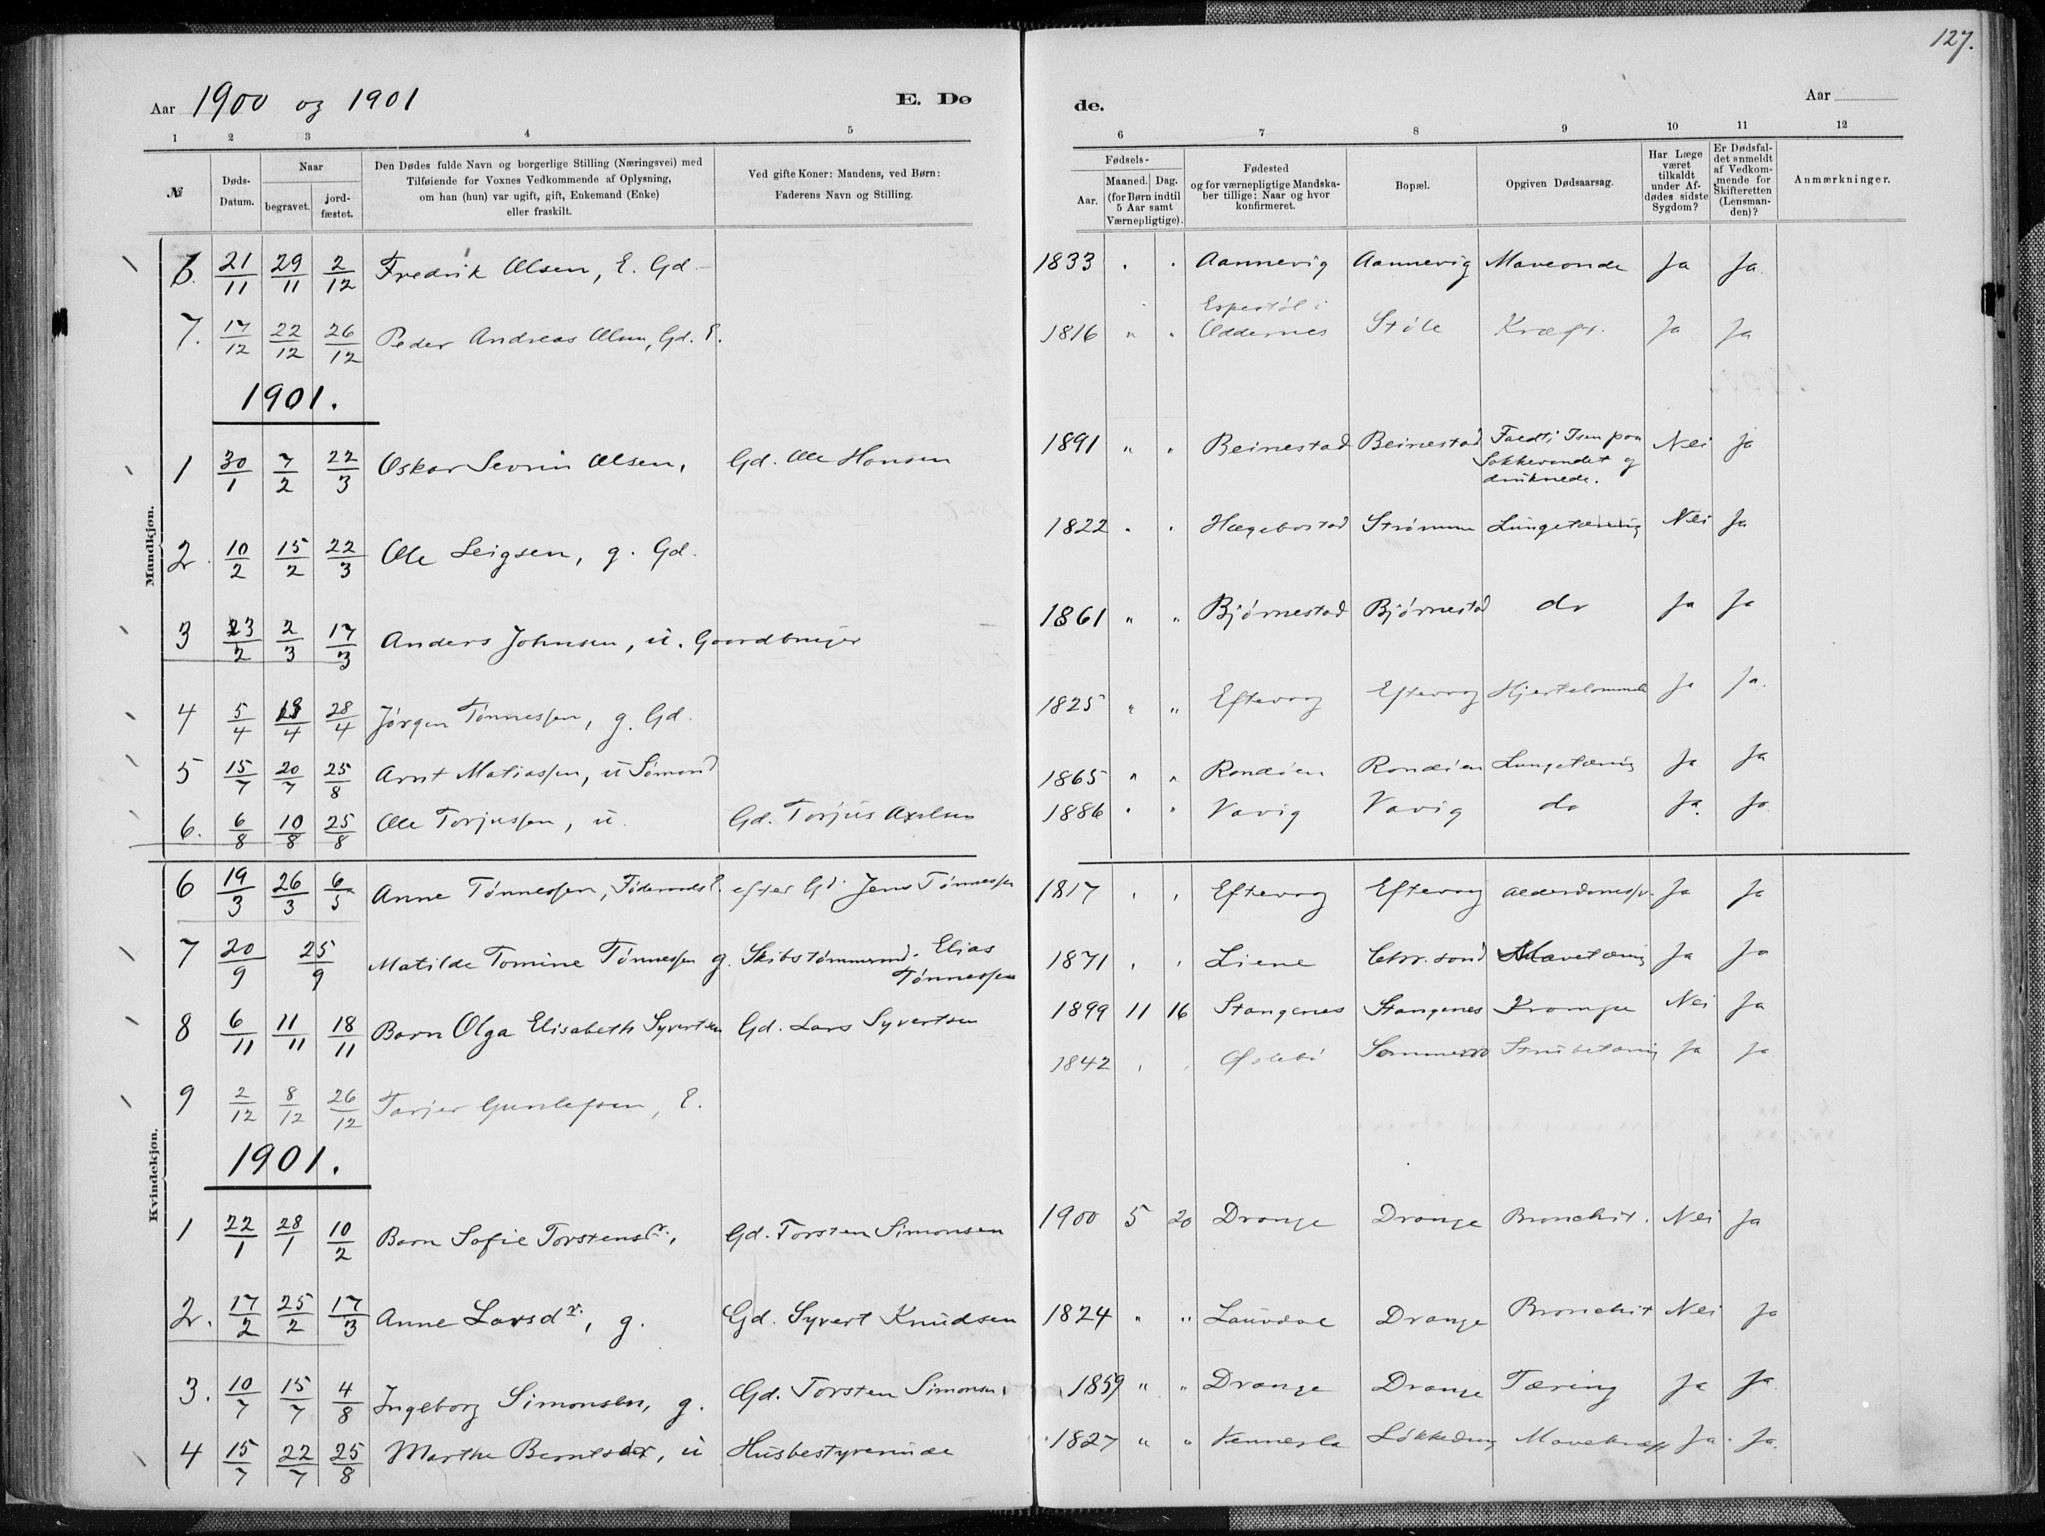 127.
Aar 1900 og 1901 E. Dø de. Aar
1 2 3 4 5 6 7 8 9 10 11 12
№ Døds-Datum. Naar begravet. jord-fæstet. Den Dødes fulde Navn og borgerlige Stilling (Næringsvei) med Tilføiende for Voxnes Vedkommende af Oplysning, om han (hun) var ugift, gift, Enkemand (Enke) eller fraskilt. Ved gifte Koner: Mandens, ved Børn: Faderens Navn og Stilling. Fødsels- Aar. Maaned. Dag. (for Børn indtil 5 Aar samt Værnepligtige). Fødested og for værnepligtige Mandska-ber tillige: Naar og hvor konfirmeret. Bopæl. Opgiven Dødsaarsag. Har Læge været tilkaldt under Af-dødes sidste Sygdom? Er Dødsfal-det anmeldt af Vedkom-mende for Skifteretten (Lensman-den)? Anmærkninger.
Mandkjøn.
6. 21/11 29/11 2/12 Fredrik Olsen, E. Gd. 1833 " " Aannevig Aannevig Maveonde Ja Ja.
7. 17/12 22/12 26/12 Peder Andreas Olsen, Gd. E. 1816 " " Espestøl i Oddernes Støle Kræft. Ja Ja
1901.
1 30/1 7/2 22/3 Oskar Severin Olsen, Gd. Ole Hansen 1891 " " Beinestad Beinestad Faldt i Isen paa
Sokkevandet og
druknede. Nei Ja
2. 10/2 15/2 22/3 Ole Seigsen, g. Gd. 1822 " " Hægebostad Strømme Lungetæring Nei Ja
3 23/2 2/3 17/3 Anders Johnsen, u. Gaardbruger 1861 " " Bjørnestad Bjørnestad do Ja Ja
4 5/4 /4 28/4 Jørgen Tønnessen, g. Gd. 1825 " " Eftevaag Eftevaag Ja Ja.
5 15/7 20/7 25/8 Arnt Matiassen, u Sømand 1865 " " Rondøen Rondøen Lungetæring Ja Ja
6. 6/8 10/8 25/8 Ole Torjussen, u. Gd. Torjus Axelsen 1886 " " Vavig Vavig do Ja. Ja.
Kvindekjøn.
6 19/3 26/3 6/5 Anne Tønnessen, Føderaads E. efter Gd. Jens Tønnessen 1817 " " Eftevaag Eftevaag Ja Ja
7 20/9 25/9 Matilde Tomine Tønnessen g. Skibstømmermd. Elias
Tønnessen 1871 " " Liene Chr.sand Mavetæring Ja Ja
8 6/11 11/11 18/11 Barn Olga Elisabeth Syvertsen Gd. Lars Syvertsen 1899 11 16 Stangenes Stangenes Krampe Nei Ja
9 2/12 8/12 26/12 Tarjer Gunlefsen, E. 1842 " " Øslebø Strubetæring Ja Ja
1901.
1 22/1 28/1 10/2 Barn Sofie Torstensdr., Gd. Torsten Simonsen 1900 5 20 Drange Drange Bronchit. Nei Ja
2. 17/2 25/2 17/3 Anne Larsdr., g. Gd. Syvert Knudsen 1824 " " Lauvdal Drange Bronchit Nei Ja
3. 10/7 15/7 4/8 Ingeborg Simonsen, g. Gd. Torsten Simonsen 1859 " " Drange Drange Tæring Ja Ja.
4 15/7 22/7 25/8 Marthe Berntsdr, u Husbestyrerinde 1827 " " Vennesla Mavekræft Ja. Ja.